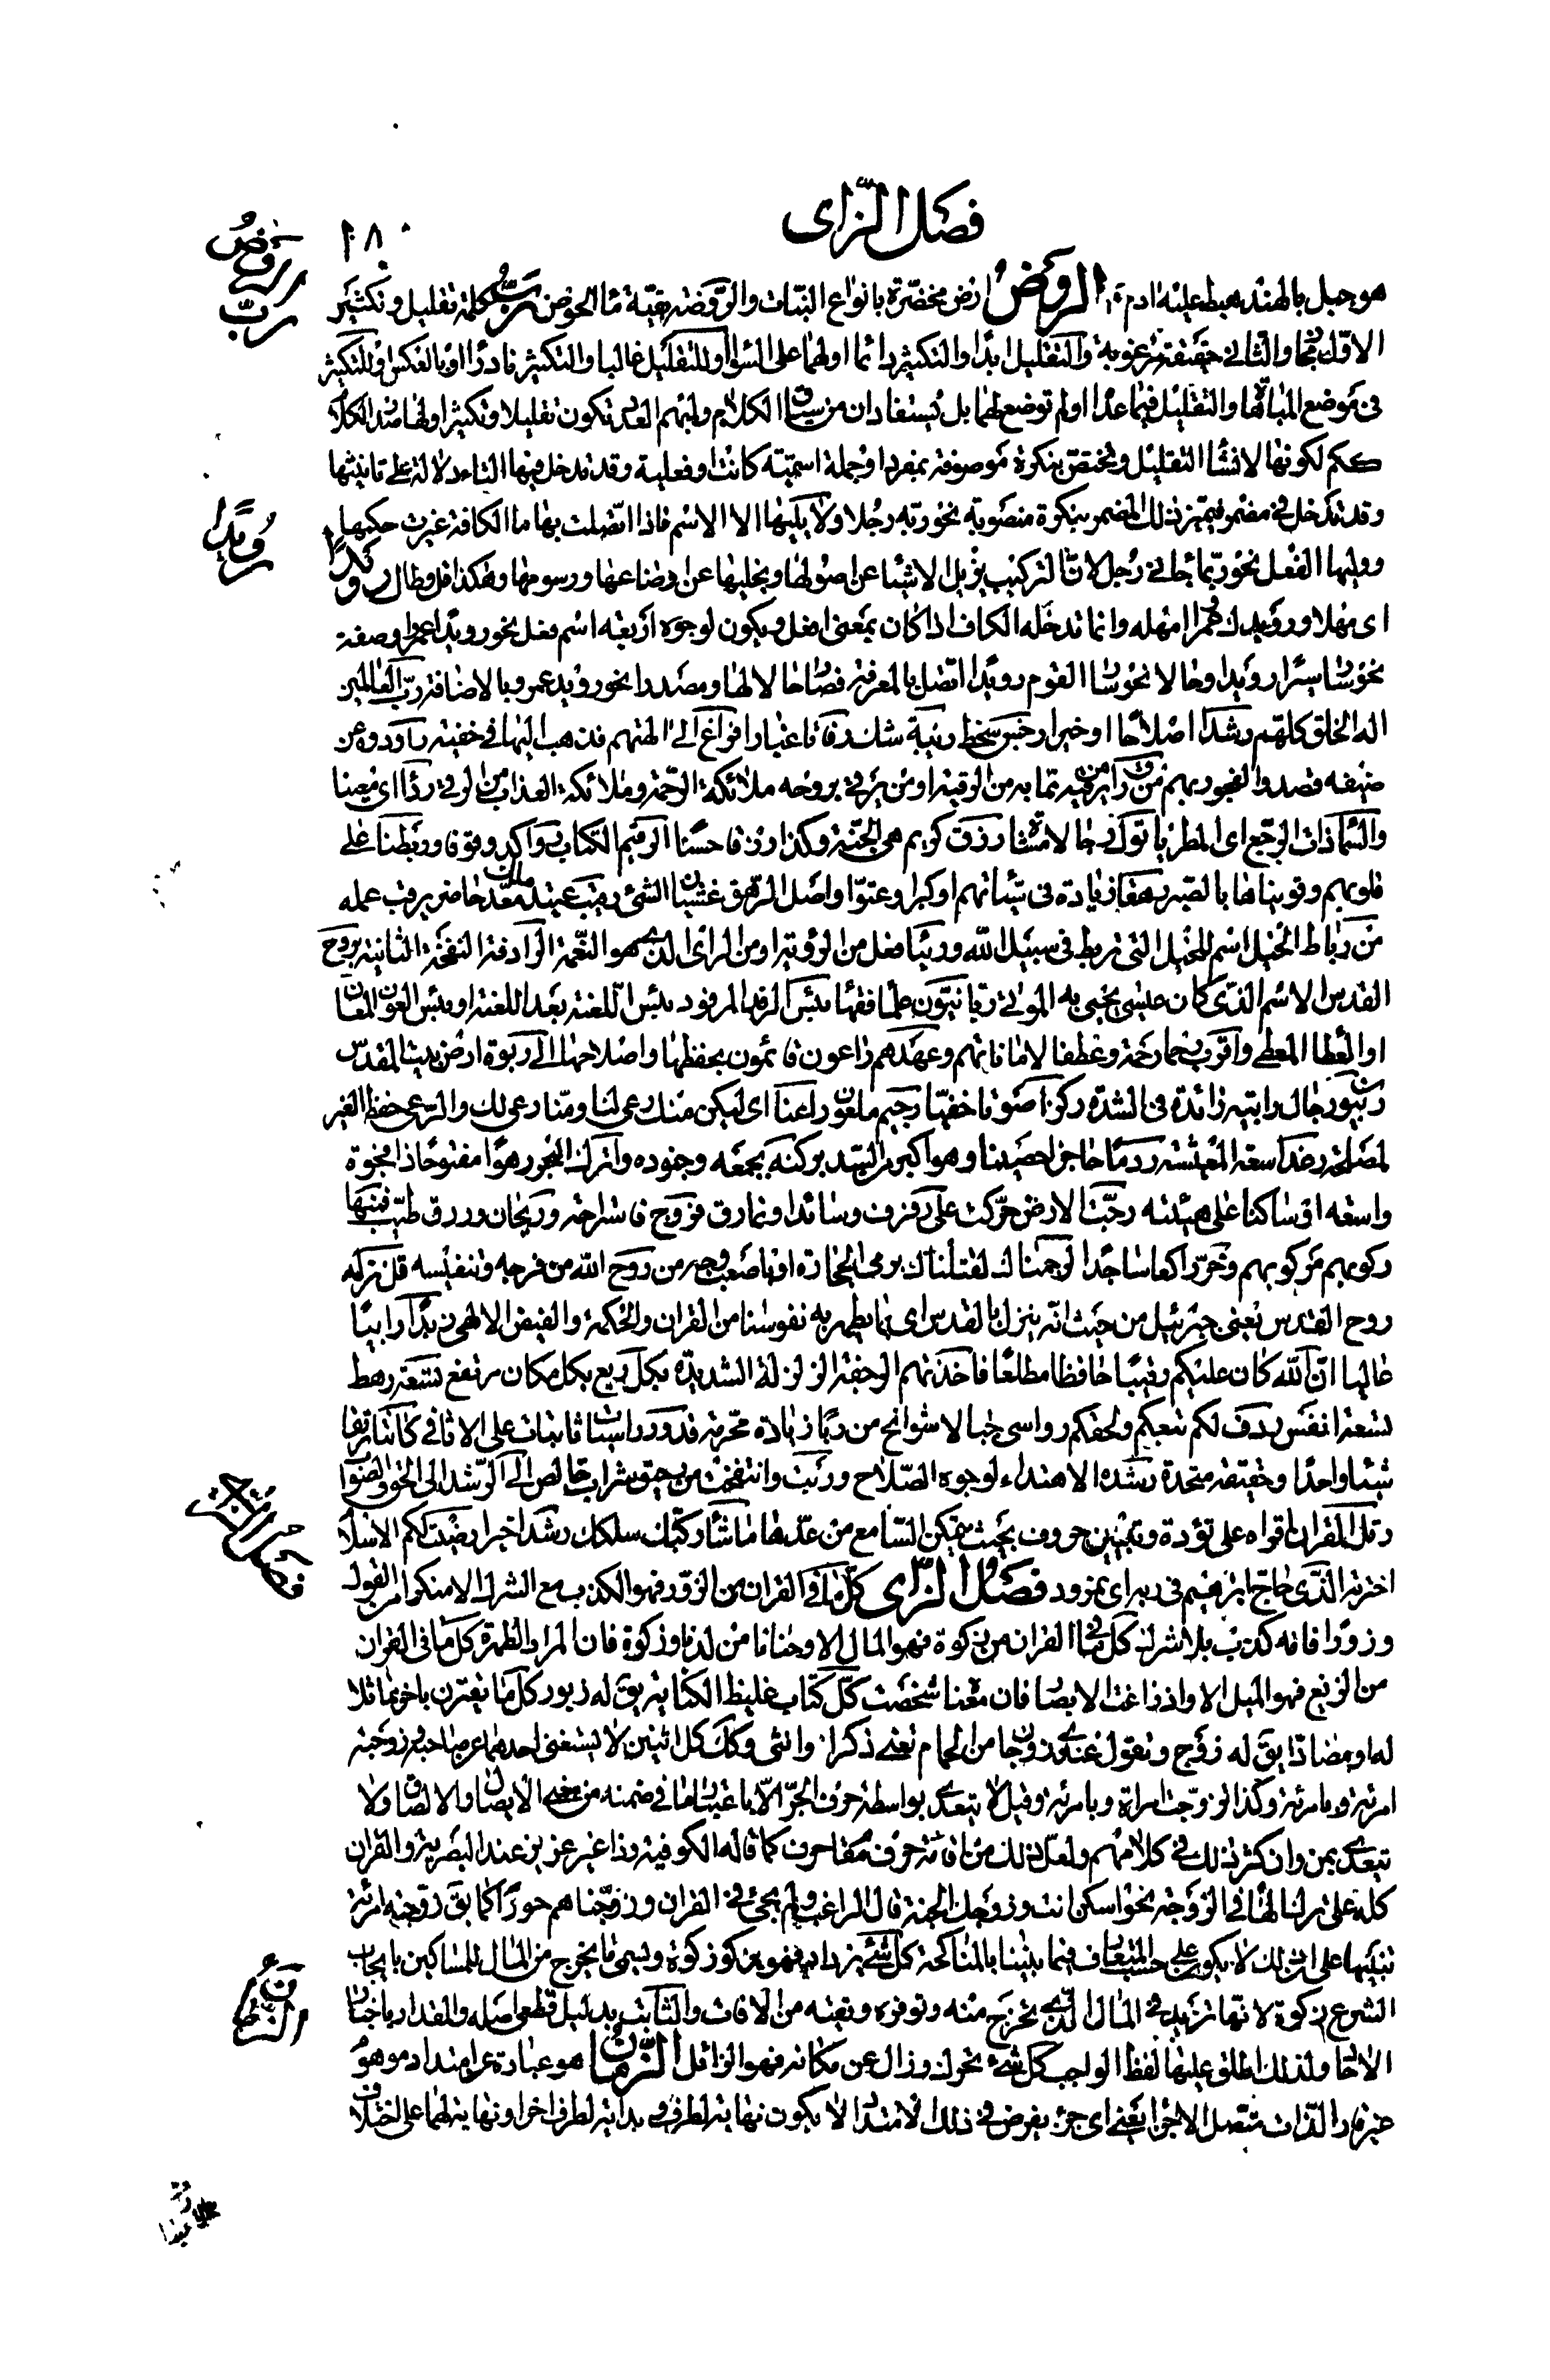 فصل الزاى
١٨٠
الروض
ربّ
هو جبل بالهند هبط عليه ادم الروض ارض مخضرة بانواع النبات والروضة بقية ماء الحوض ربّ كلمة تقليل وتكثير
الاول والثانى حقيقة والتقليل ابدا والتكثير دائما اولهما على السواء او للتقليل غالبا والتكثير نادرا او بالعكس او للتكثير
فى موضع المباهاة والتقليل فيما عداه او لم توضع لهما بل يستفادان من سياق الكلام تكون تقليلا وتكثيرا ولها صدر الكلام
ككم لكونها لانشاء التقليل ويختص بنكرة موصوفة بمفرد او جملة اسمية كانت او فعلية وقد تدخل فيها التاء دلالة على تانيثها
رويدا
وقد تدخل فى مضمر فيميز ذلك المضمر بنكرة منصوبة نحو ربه رجلا ولا يليها الا الاسم فاذا اتصلت بها ما الكافة غيرت حكمها
ووليها الفعل نحو ربما جاءنى رجل لان التركيب يزيل الاشياء عن اصولها ويخليها عن اوضاعها ورسومها وهكذا قل وطال رويدا
اى مهلا ورويدك عمرا امهله وانما تدخله الكاف اذا كان بمعنى افعل ويكون لوجوه اربعة اسم فعل نحو رويدا عمرا وصفة
نحو ساروا سيرا رويدا وحالا نحو سار القوم رويدا اتصل بالمعرفة فصار حالا لها ومصدرا نحو رويد عمرو بالاضافة ربّ العالمين
اله الخلق كلهم رشدا اصلاحا او خيرا رجس سخط ريبة شك رفاتا غبارا فراغ الى الهتهم فذهب اليها فى خفية راودوه عن
ضيفه قصدوا الفجور بهم من راق من يرقيه مما به من الرقية او من يرقى بروحه ملائكة الرحمة وملائكة العذاب من الرقى ردءا اى معينا
والسماء ذات الرجع اى المطر ياتوك رجالا مشاة رزق كريم هى الجنة وكذا رزقا حسنا الرقيم الكتاب رواكد وقوفا وربطنا على
قلوبهم وقويناها بالصبر رهقا زيادة فى سيئاتهم او كبرا وعتوا واصل الرهق غشيان الشئ رقيب عتيد ملك معد حاضر يرقب عمله
من رباط الخيل اسم للخيل التى تربط فى سبيل الله ورئيا فعل من الرؤية او من الرى الذى هو النعمة الرادفة النفخة الثانية بروح
القدس الاسم الذى كان عيسى يحيى به الموتى ربانيون علماء فقهاء بئس الرفد المرفود بئس اللعنة بعد اللعنة او بئس العون المعان
او العطاء المعطى واقرب رحما رحمة وعطفا لاماناتهم وعهدهم راعون قائمون بحفظها واصلاحها الى ربوة ارض بيت المقدس
ربيون رجال رابية زائدة فى الشدة ركزا صوتا خفيا رجيم ملعون راعنا اى ليكن منك رعى لنا ومنا رعى لك والرعى حفظ الغير
لمصلحة رغدا سعة المعيشة ردما حاجزا حصينا وهو اكبر من السد بركنه بجمعه وجنوده واترك البحر رهوا مفتوحا ذا فجوة
واسعة او ساكنا على هيئته رجت الارض حركت على رفرف وسائد او نمارق فروح فاستراحة وريحان ورزق طيب فمنها
ركوبهم مركوبهم وخر راكعا ساجدا لرجمناك لقتلناك برمى الحجارة او باصعب وجه من روح الله من فرجه وتنفيسه قل نزله
روح القدس يعنى جبرئيل من حيث انه ينزل بالقدس اى بما يطهر به نفوسنا من القران والحكمة والفيض الالهى زبدا رابيا
عاليا ان الله كان عليكم رقيبا حافظا مطلعا فاخذتهم الرجفة الزلزلة الشديدة بكل ريع بكل مكان مرتفع تسعة رهط
تسعة انفس ردف لكم تبعكم ولحقكم رواسى جبالا شوامخ من ربا زيادة محرمة قدور راسيات ثابتات على الاثافى كانتا رتقا
شيئا واحدا وحقيقة متحدة رشده الاهتداء لوجوه الصلاح وربت وانتفخت من رحيق شراب خالص الى الرشد الى الحق والصواب
فصل الزاى
رتل القران اقراه على تؤدة وتبيين حروف بحيث يتمكن السامع من عدها ما شاء ركبك سلكك رشدا خيرا رضيت لكم الاسلام
اخترته الذى حاج ابرهيم فى ربه اى نمرود فصل الزاى كل ما فى القران من الزور فهو الكذب مع الشرك الا منكرا من القول
وزورا فانه كذب بلا شرك كل ما فى القران من زكوة فهو المال الا وحنانا من لدنا وزكوة فان المراد الطهرة كل ما فى القران
من الزيغ فهو الميل الا واذ زاغت الابصار فان معناه شخصت كل كتاب غليظ الكتابة يق له زبور كل ما يقترن باخر مماثلا
له او مضادا يق له زوج وتقول عندى زوجان من الحمام تعنى ذكرا وانثى وكك كل اثنين لا يستغنى احدهما عن صاحبه زوجته
امرئة وبامرئة وكذا تزوجت امراة وبامرئة وقيل لا يتعدى بواسطة حرف الجر الا باعتبار ما فى ضمنه من معنى الايصال والالصاق ولا
يتعدى بمن وان كثر ذلك فى كلامهم ولعل ذلك من اقامة حرف مقام حرف كما قاله الكوفية وذا غير عزيز عند البصرية والقران
كله على ترك الهاء فى الزوجة نحو اسكن انت وزوجك الجنة قال الراغب ولم يجئ فى القران وزوجناهم حورا كما يق زوجته امرئة
تنبيها على ان ذلك لا يكون على حسب المتعارف فيما بيننا بالمناكحة كل شئ يزداد فهو يزكو زكوة ويسمى ما يخرج من المال للمساكين بايجاب
الزمان
الشرع زكوة لانها تزيد فى المال الذى تخرج منه وتوفره وتقيه من الافات والثابت بدليل قطعى اصله والمقدار باخبار
الاحاد ولذلك اطلق عليها لفظ الواجب كل شئ تحرك وزال عن مكانه فهو الزائل الزمان هو عبارة عن امتداد موهوم
غير قار الذات متصل الاجزاء يعنى اى جزء يفرض فى ذلك الامتداد لا يكون نهاية لطرف وبداية لطرف اخر او نهاية لهما على اختلاف